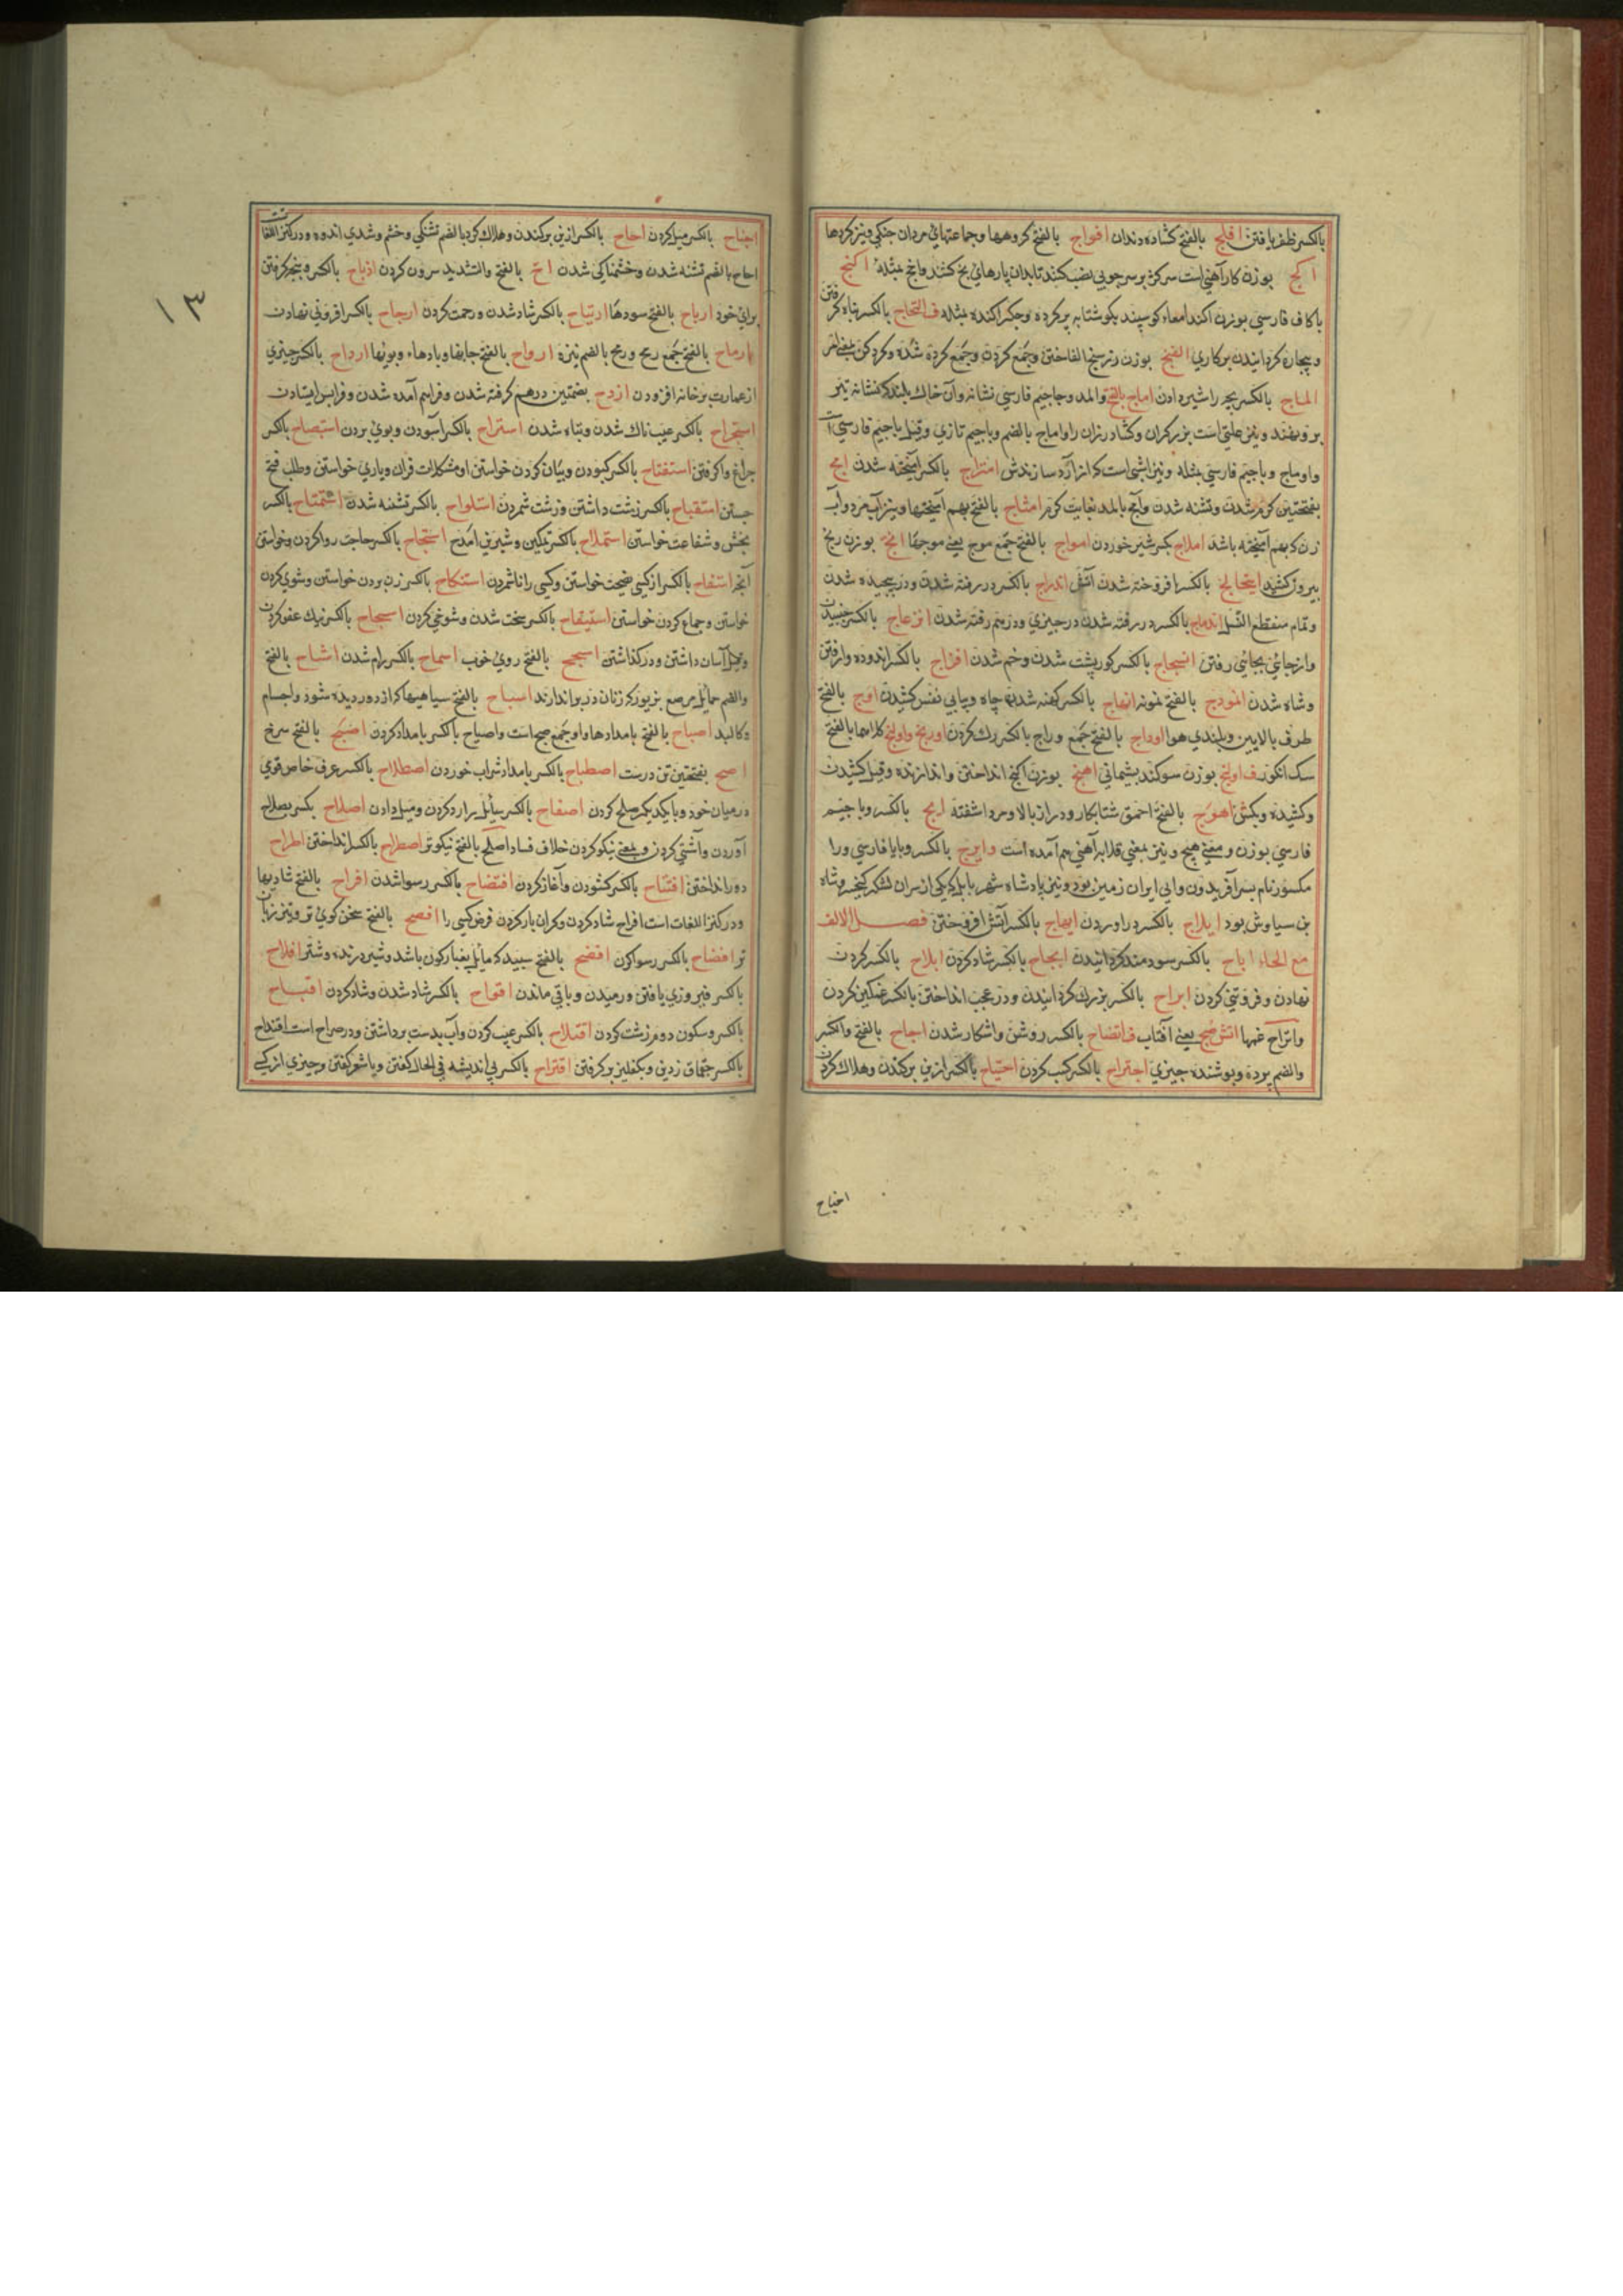 بالکسر ظفر یافتن افلج بالفتح کشاده دندان افواج بالفتح کروهها وجماعتهائ مردان جنکی ونیز کردها
اکج بوزن کار آهنی است سرکژ بر سر چوبی نصب کنند تا بدان پارهائ یخ کشند وانج مثله اکنج
باکاف فارسی بوزن اکند امعاء کوسپند بکوشتابه پر کرده وجکر اکنده مثله ف التحاج بالکسر پناه کرفتن
وبیچاره کردانیدن برکاری الفنج بوزن الفاختن وجمع کردن وجمع کرده شده وکرد کن بمعنی امر
الماج بالکسر بچه را شیر دادن اماج بالفتح والمد وجا جیم فارسی نشانه وآن خاک بلند که نشانه تیر
برو نهند ونیز علتی است بزرکران وکشاورزان را واماج بالضم وباجیم تازی وقیل باجیم فارسی است
واوماج وباجیم فارسی مثله ونیز اشی است که از آرد سازندش امتزاج بالکسر آمیخته شدن امج
بفتحتین کرم شدن وتشنه شدن وآمج بالمد بغایت کرم امشاج بالفتح بهم آمیختها ونیز آب مرد وآب
زن که بهم آمیخته باشد املاج بکسر شیر خوردن امواج بالفتح جمع موج یعنی موجها انج بوزن رنج
بیرون کشید بالکسر افروخته شدن آتش اندراج بالکسر در رفته شدن ودر پیچیده شدن
وتمام منقطع النسل اندماج بالکسر در رفته شدن در چیزی ودرهم رفته شدن انزعاج بالکسر جنبیدن
وازجائی بجائی رفتن بالکسر کوز پشت شدن وخم شدن بالکسر اندوده وارفتن
وشاه شدن انموذج بالفتح نمونه انهاج بالکسر کهنه شدن جامه وپیاپی نفس کشیدن اوج بالفتح
طرف بالایین وبلندی هوا اوداج بالفتح جمع وداج بالکسر رک کردن اورنج واولنج کلاهها بالفتح
سک انکور ف اولنج بوزن سوکند پشیمانی اهنج بوزن اکنج انداختن واندازنده وقیل کشیدن
وکشیده وبکش اهوج بالفتح احمق شتابکار ودراز بالا ومرد اشفته ایج بالکسر وبا جیم
فارسی بوزن ومعنی هیچ ونیز بمعنی قلابه آهنی هم آمده است وایرج بالکسر وبایا فارسی ورا
مکسور نام پسر آفریدون والی ایران زمین بود ونیز پادشاه شهر بابل که یکی از سران لشکر کیخسرو شاه
بن سیاوش بود ایلاج بالکسر در اوردن ایهاج بالکسر آتش افروختن فصل الالف
مع الحاء اباح بالکسر سودمند کردانیدن ابجاح بالکسر شاد کردن ابلاح بالکسر کردن
نهادن وفروتنی کردن ابراح بالکسر بزرک کردانیدن ودر عجب انداختن بالکسر غمکین کردن
واتراح غمها اتش صبح یعنی آفتاب ف اتضاح بالکسر روشن واشکار شدن اجاح بالفتح والکسر
والضم پرده وپوشنده چیزی اجتراح بالکسر کسب کردن اجتیاح بالکسر از بن برکندن وهلاک کردن
اجناح
اجناح بالکسر میل کردن احاح بالکسر از بن برکندن وهلاک کرد بالضم تشنکی وخشم وشدی اندوه ودر کنز اللغات
احاح بالضم تشنه شدن وخشمناکی شدن اح بالفتح والتشدید سرون کردن اذباح بالکسر
برای خود ارباح بالفتح سودها ارتیاح بالکسر شاد شدن ورحمت کردن ارجاح بالکسر افزونی نهادن
ارماح بالفتح جمع رمح ورمح بالضم نیزه ارواح بالفتح جانها وبادهاء وبویها ارداح بالکسر چیزی
از عمارت بر خانه افزودن ازدح بضمتین درهم کرفته شدن وفراهم آمده شدن وفراپس ایستادن
استجراح بالکسر عیب ناک شدن وتباه شدن استراح بالکسر آسودن وبوی بردن استصباح بالکسر
چراغ واکرفتن استفتاح بالکسر کشودن وبیان کردن خواستن او مشکلات قران ویاری خواستن وطلب فتح
جستن استقباح بالکسر زشت داشتن وزشت شمردن استلواح بالکسر تشنه شدن استمناح بالکسر
بخش وشفاعت خواستن استملاح بالکسر نمکین وشیرین آمدن استنجاح بالکسر حاجت روا کردن وخواستن
آنچه استنصاح بالکسر از کسی نصیحت خواستن وکسی را ناشمردن استنکاح بالکسر زن بردن خواستن وشوی کردن
خواستن وجماع کردن خواستن استیقاح بالکسر سخت شدن وشوخی کردن اسجاح بالکسر نیک عفو کردن
وقیل آسان داشتن ودر کذاشتن اسجح بالفتح روی خوب اسماح بالکسر رام شدن اشاح بالفتح
والضم حمایل مرصع بزیور که زنان در بر اندازند اشباح بالفتح سیاهیها که از دور دیده شود واجسام
وکالبد اصباح بالفتح بامدادها واو جمع صبح است واصباح بالکسر بامداد کردن اصبح بالفتح سرخ
اصح بفتحتین تن درست اصطباح بالکسر بامداد شراب خوردن اصطلاح بالکسر عرف خاص قوی
درمیان خود وبا یکدیکر صلح کردن اصفاح بالکسر سایل را رد کردن ومیل دادن اصلاح بکسر بصلاح
آوردن وآشتی کردن وبمعنی نیکو کردن خلاف فساد اصلح بالفتح نیکوتر اصطراح بالکسر انداختن اطراح
دور انداختن افتتاح بالکسر کشودن وآغاز کردن افتضاح بالکسر رسوا شدن افراح بالفتح شادیها
ودر کنز اللغات است افراح شاد کردن وکران بار کردن قرض کسی را افصح بالفتح سخن کوی تر وتیز زبان
تر افضاح بالکسر رسوا کردن افضح بالفتح سپید که مایل بغبار کون باشد وشیر درنده وشتر افلاح
بالکسر فیروزی یافتن ورمیدن وباقی ماندن اقواح بالکسر شاد شدن وشاد کردن اقباح
بالکسر وسکون دوم زشت کردن اقتداح بالکسر عیب کردن وآب بدست برداشتن ودر صراح است اقتداح
بالکسر چقماق زدن وبکفلیز برکرفتن اقتراح بالکسر بی اندیشه فی الحال کفتن وبا شعر کفتن وچیزی از کسی
۱۳